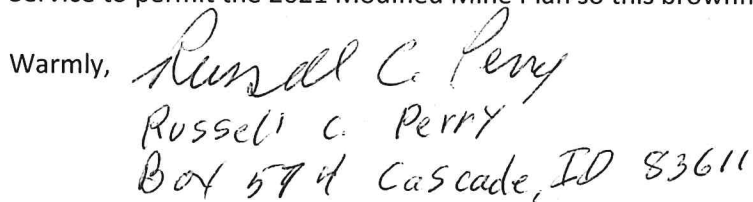 Service to permit the 2021 Modified Mine Plan so this brownfi
Warmly, Russell C. Perry
Russell C. Perry
Box 594 Cascade, ID 83611